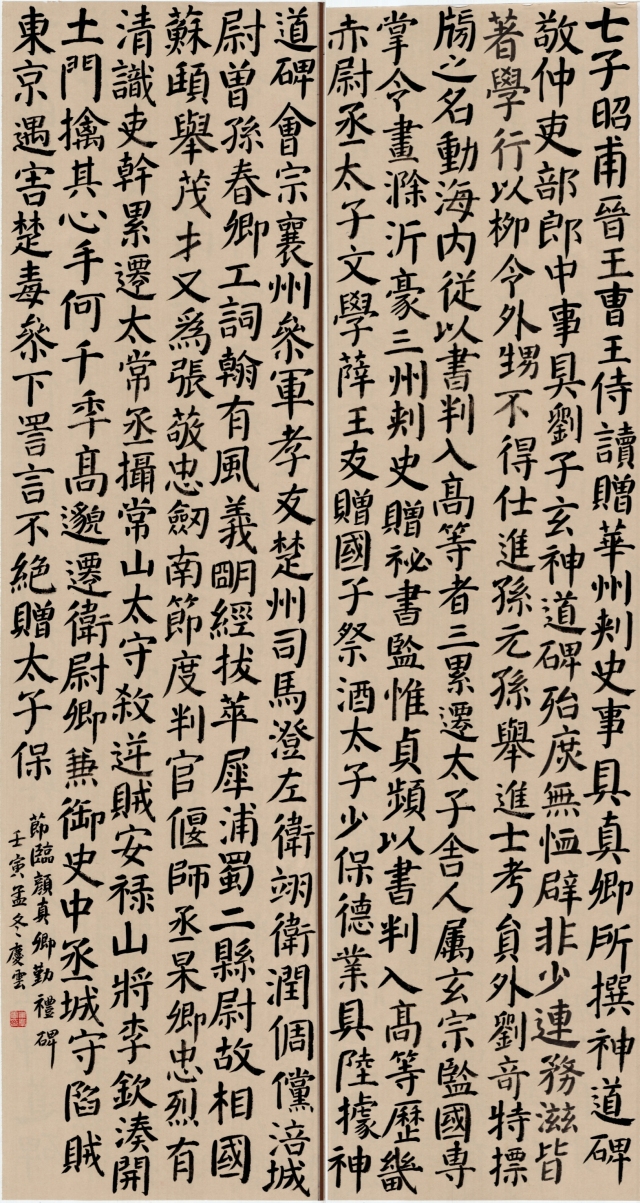 七子昭甫晉王曹王侍讀贈華州刾史事具真卿所撰神道碑
敬仲吏部郎中事具劉子玄神道碑殆庶無恤辟非少連務滋皆
著學行以柳令外甥不得仕進孫元孫舉進士考貟外劉奇特摽
牓之名動海內從以書判入高等者三累遷太子舍人属玄宗監國專
掌令畫滁沂豪三州刾史贈祕書監惟貞頻以書判入高等歷畿
赤尉丞太子文學薛王友贈國子祭酒太子少保德業具陸據神
道碑會宗襄州叅軍孝友楚州司馬澄左衛翊衛潤倜儻涪城
尉曾孫春卿工詞翰有風義明經拔萃犀浦蜀二縣尉故相國
蘇頲舉茂才又爲張敬忠劒南節度判官偃師丞杲卿忠烈有
清識吏幹累遷太常丞攝常山太守殺逆賊安祿山將李欽湊開
土門擒其心手何千秊高邈遷衛尉卿兼御史中丞城守陷賊
東京遇害楚毒叅下詈言不絕贈太子保
節臨顏真卿勤禮碑
壬寅孟冬慶雲